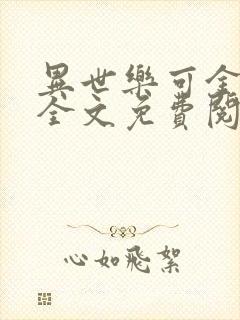 異世樂可全
全文免費閱
心如飛絮